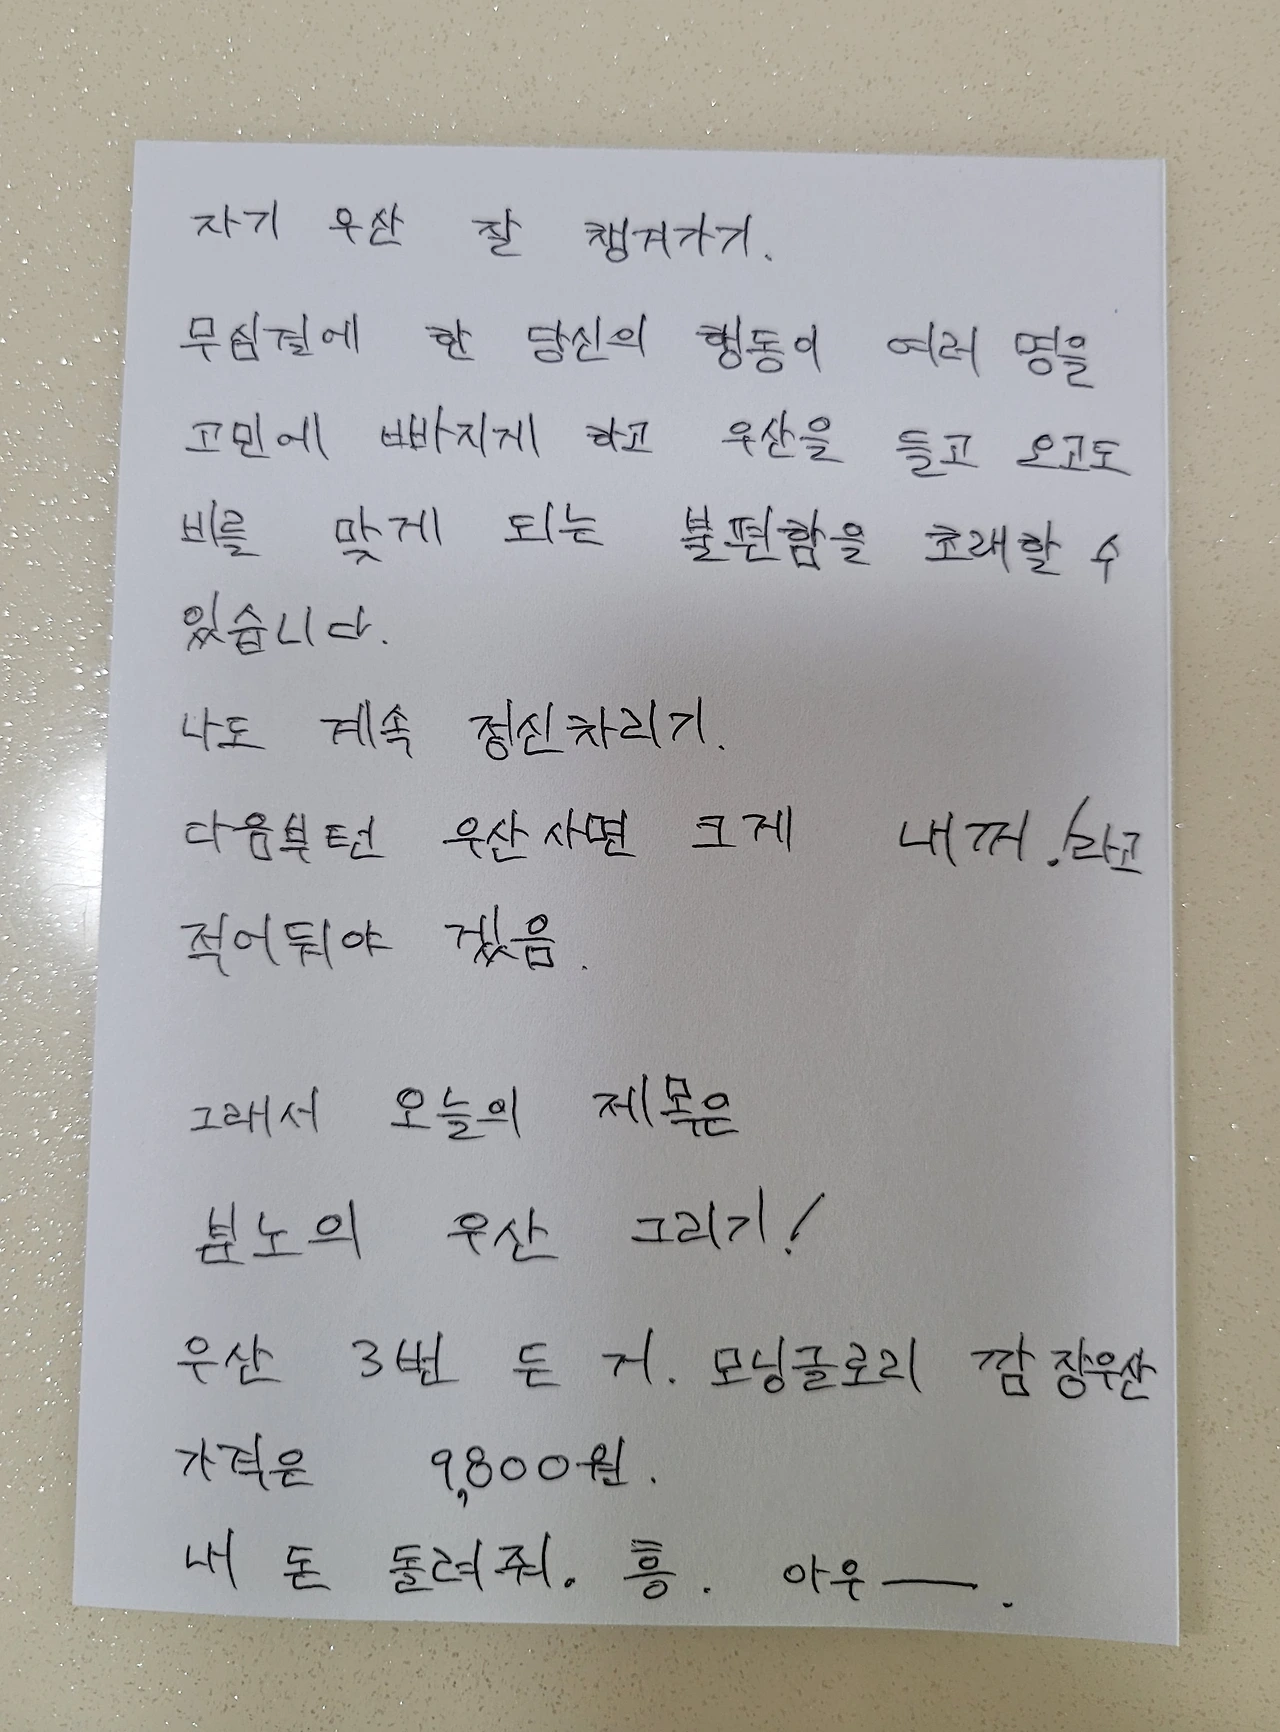 자기 우산 잘 챙겨가기.
무심결에 한 당신의 행동이 여러 명을
고민에 빠지게 하고 우산을 들고 오고도
비를 맞게 되는 불편함을 초래할 수
있습니다.
나도 계속 정신차리기.
다음부턴 우산사면 크게 내꺼!라고
적어둬야 겠음.
그래서 오늘의 제목은
분노의 우산 그리기!
우산 3번 든 거. 모닝글로리 깜장우산
가격은 9,800원.
내 돈 돌려줘. 흥. 아우—.